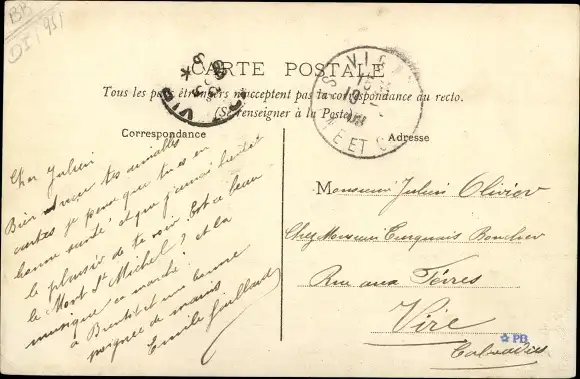 BB
CARTE POSTALE
Tous les pays étrangers n'acceptent pas la correspondance au recto.
(Se renseigner à la Poste)
Correspondance
Adresse
Cher Julien
Bien reçu tes aimables
cartes je pense que tu es en
bonne santé et que j'aurai bientot
le plaisir de te voir Est ce beau
le Mont St Michel? et la
musique ça marche?
à Bientôt et une bonne
poignée de mains
Emile Gaillard
Monsieur Julien Olivier
Chez Monsieur Turquais Boucher
Rue aux Févres
Vire
Calvados
VIRE
PB